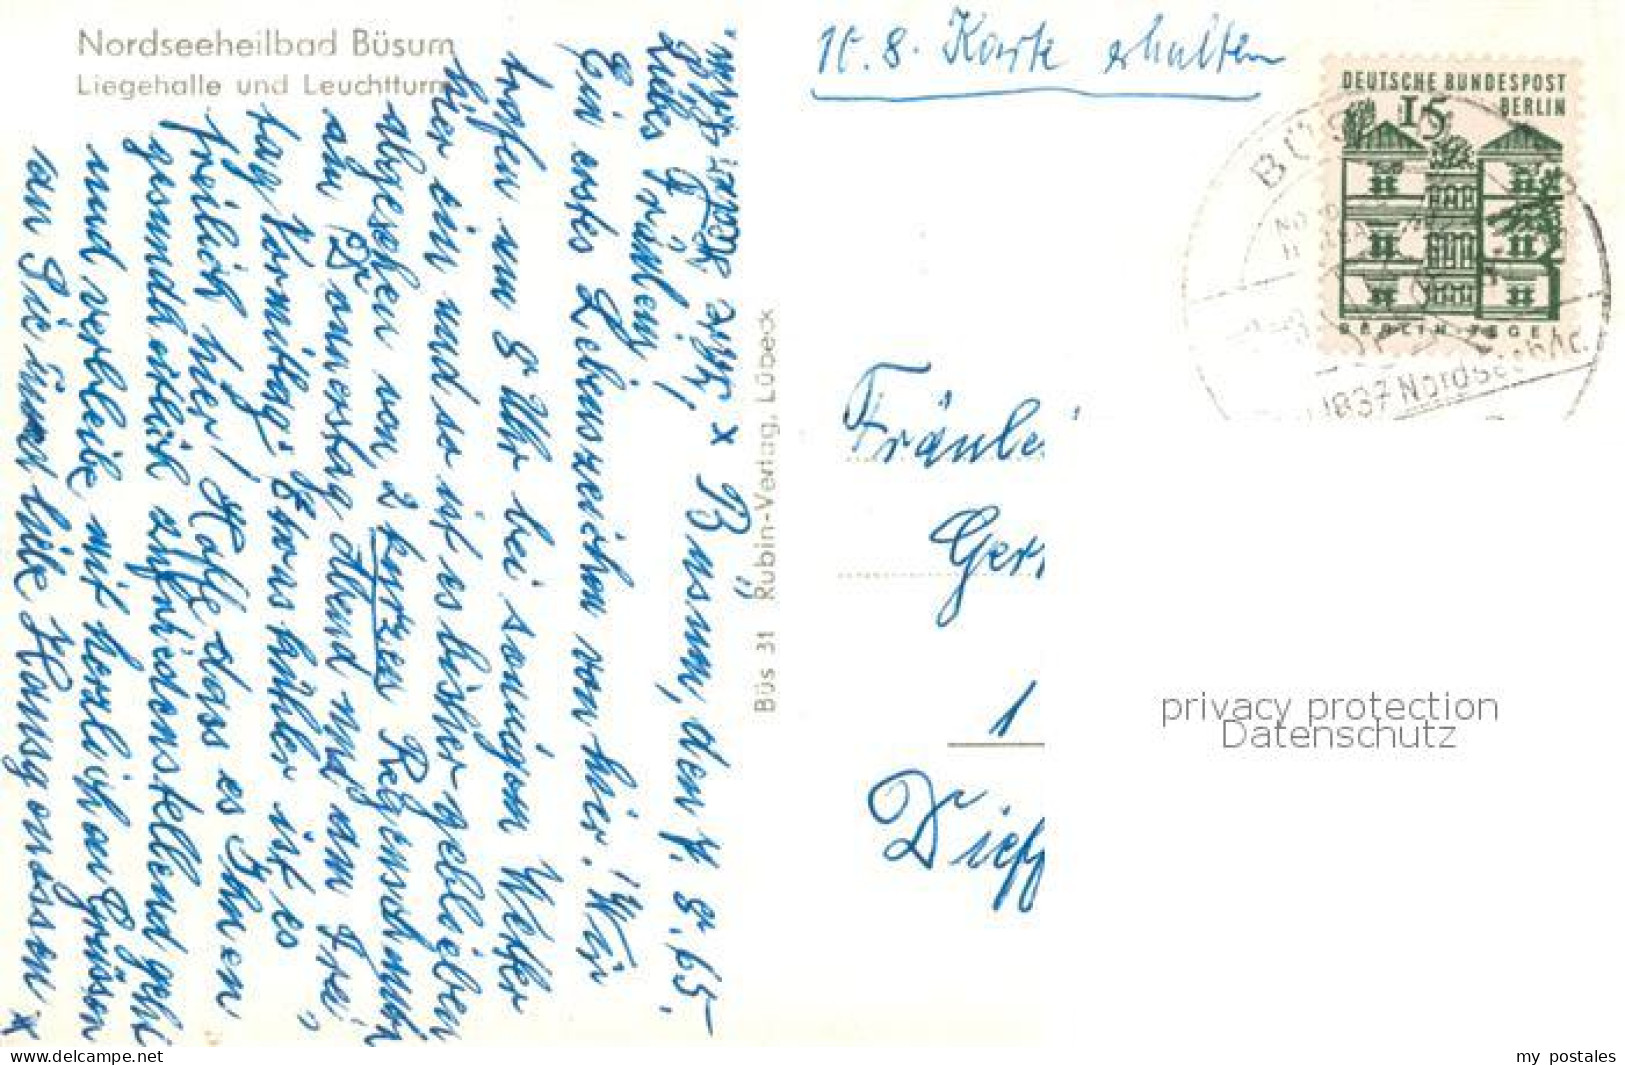 Nordseeheilbad Büsum
Liegehalle und Leuchtturm
Büsum, den 7. 8. 65.
Liebes Fräulein
Ein erstes Lebenszeichen von hier. Wir
trafen um 8 Uhr bei sonnigem Wetter
hier ein und so ist es bisher geblieben
abgesehen von 2 kurzen Regenstunden
am Donnerstag Abend und am Frei-
tag Vormittag. Etwas kühler ist es
freilich hier! Hoffe dass es Ihnen
gesundheitlich zufriedenstellend geht
und verbleibe mit herzlichen Grüssen
an Sie und liebe Hausgenossen
x
x
Büs 31 Rubin-Verlag, Lübeck
10. 8. Karte erhalten
DEUTSCHE BUNDESPOST
BERLIN
15
BERLIN-TEGEL
Nordseeh
Fräule
Ger
1
Dieff
privacy protection
Datenschutz
my postales